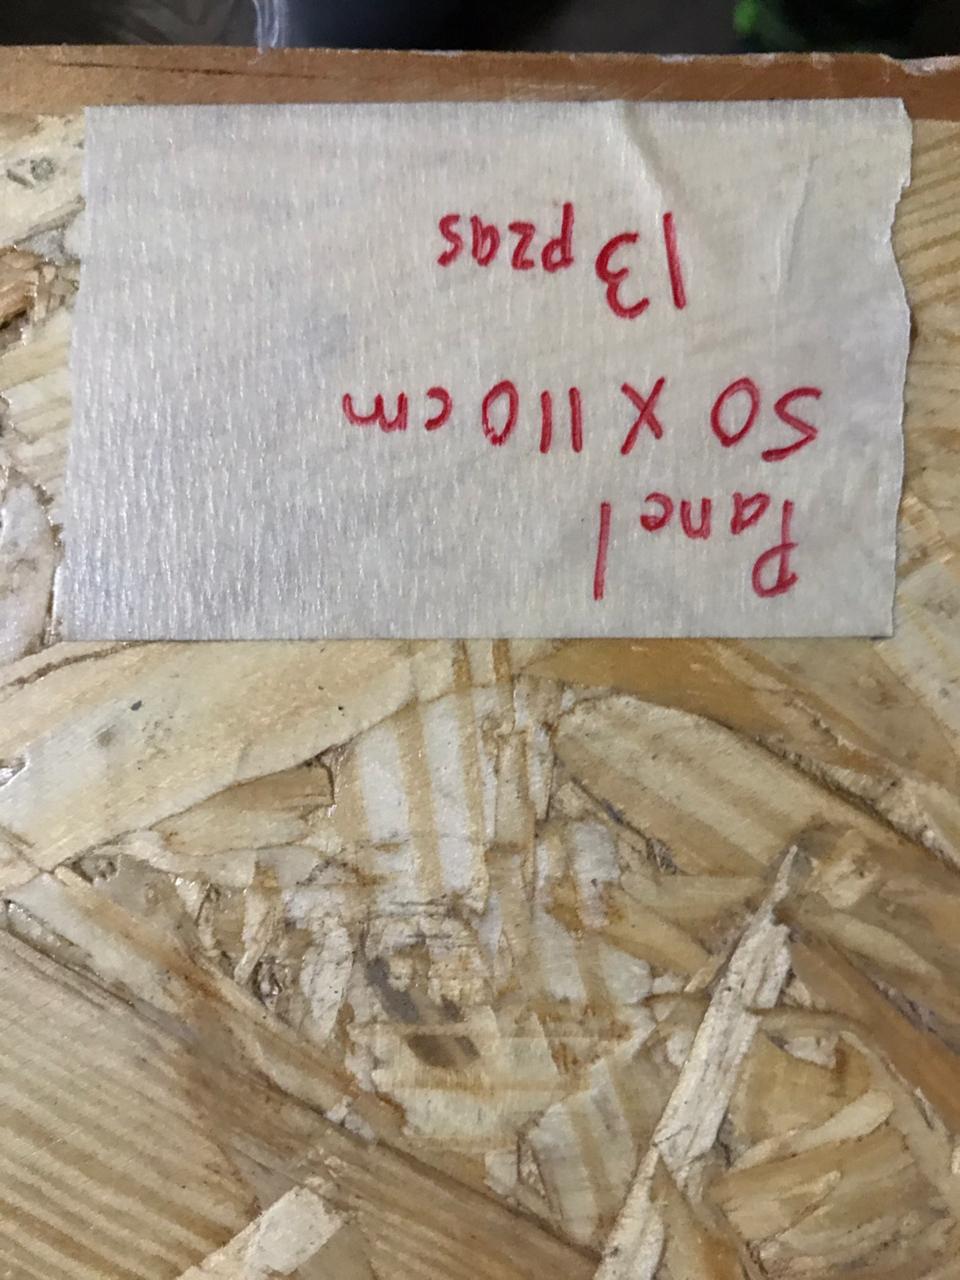 Panel
50 X 110 cm
13 pzas